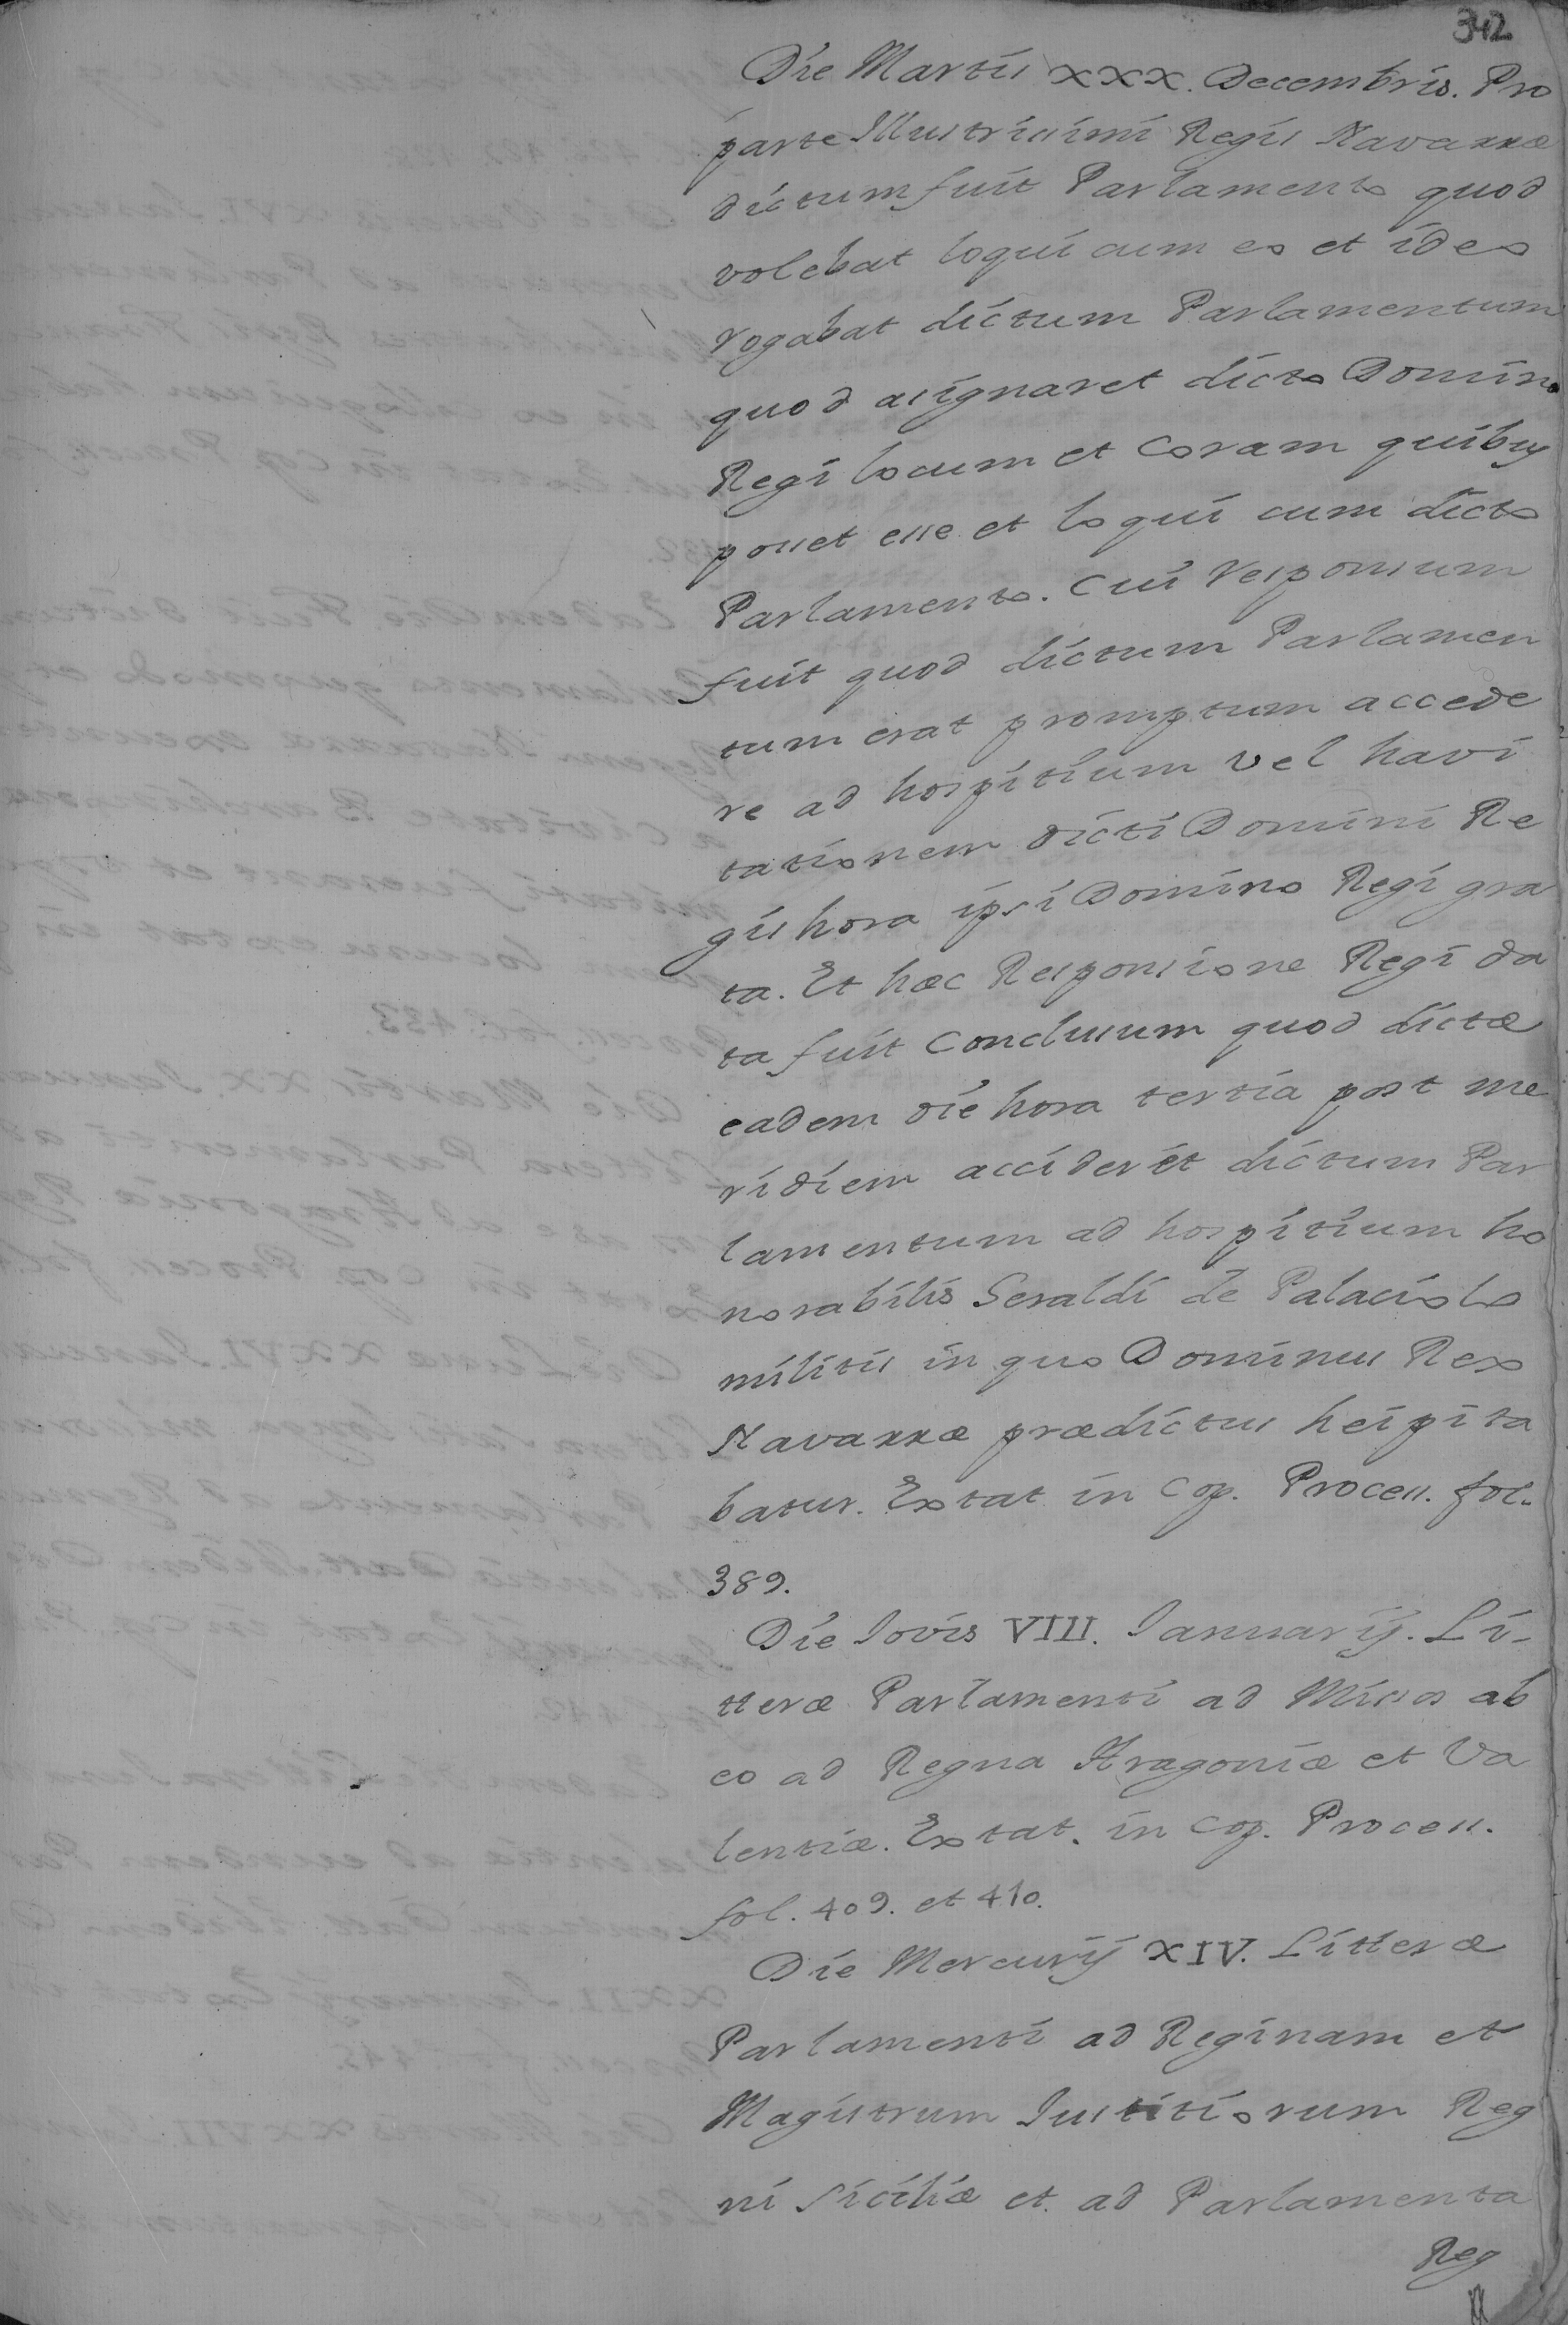 342
Die Martis XXX. Decembris. Pro
parte Illustrissimi Regis Navarræ
dictum fuit Parlamento quod
volebat loqui cum eo et ideo
rogabat dictum Parlamentum
quod assignaret dicto Domino
Regi locum et coram quibus
posset esse et loqui cum dicto
Parlamento. Cui responsum
fuit quod dictum Parlamen
tum erat promptum accede
re ad hospitium vel havi
tationem dicti Domini Re
gis hora ipsi Domino Regi gra
ta. Et hæc Responsione Regi da
ta fuit conclusum quod dictæ
eadem die hora tertia post me
ridiem accideret dictum Par
lamentum ad hospitium ho
norabilis Geraldi de Palaciolo
militis in quo Dominus Rex
Navarræ prædictus hespita
batur. Extat in Cop. Process. fol.
389.
Die Iovis VIII. Ianuarij. Li-
tteræ Parlamenti ad Missos ab
eo ad Regna Aragoniæ et Va
lentiæ. Extat. in Cop. Process.
fol. 409. et 410.
Die Mercurij XIV. Litteræ
Parlamenti ad Reginam et
Magistrum Iustitiorum Reg
ni Siciliæ et. ad Parlamenta
Reg